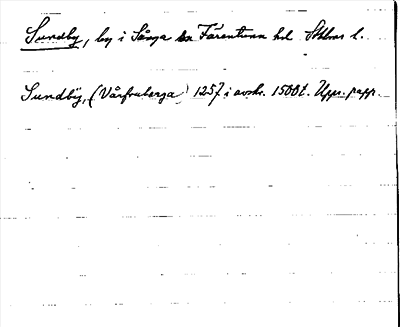 Sundby, by i Sånga sn Färentuna hd Sthlms l.
Sundby, (Vårfruberga) 1257 i avskr. 1500t. Upps. papp.